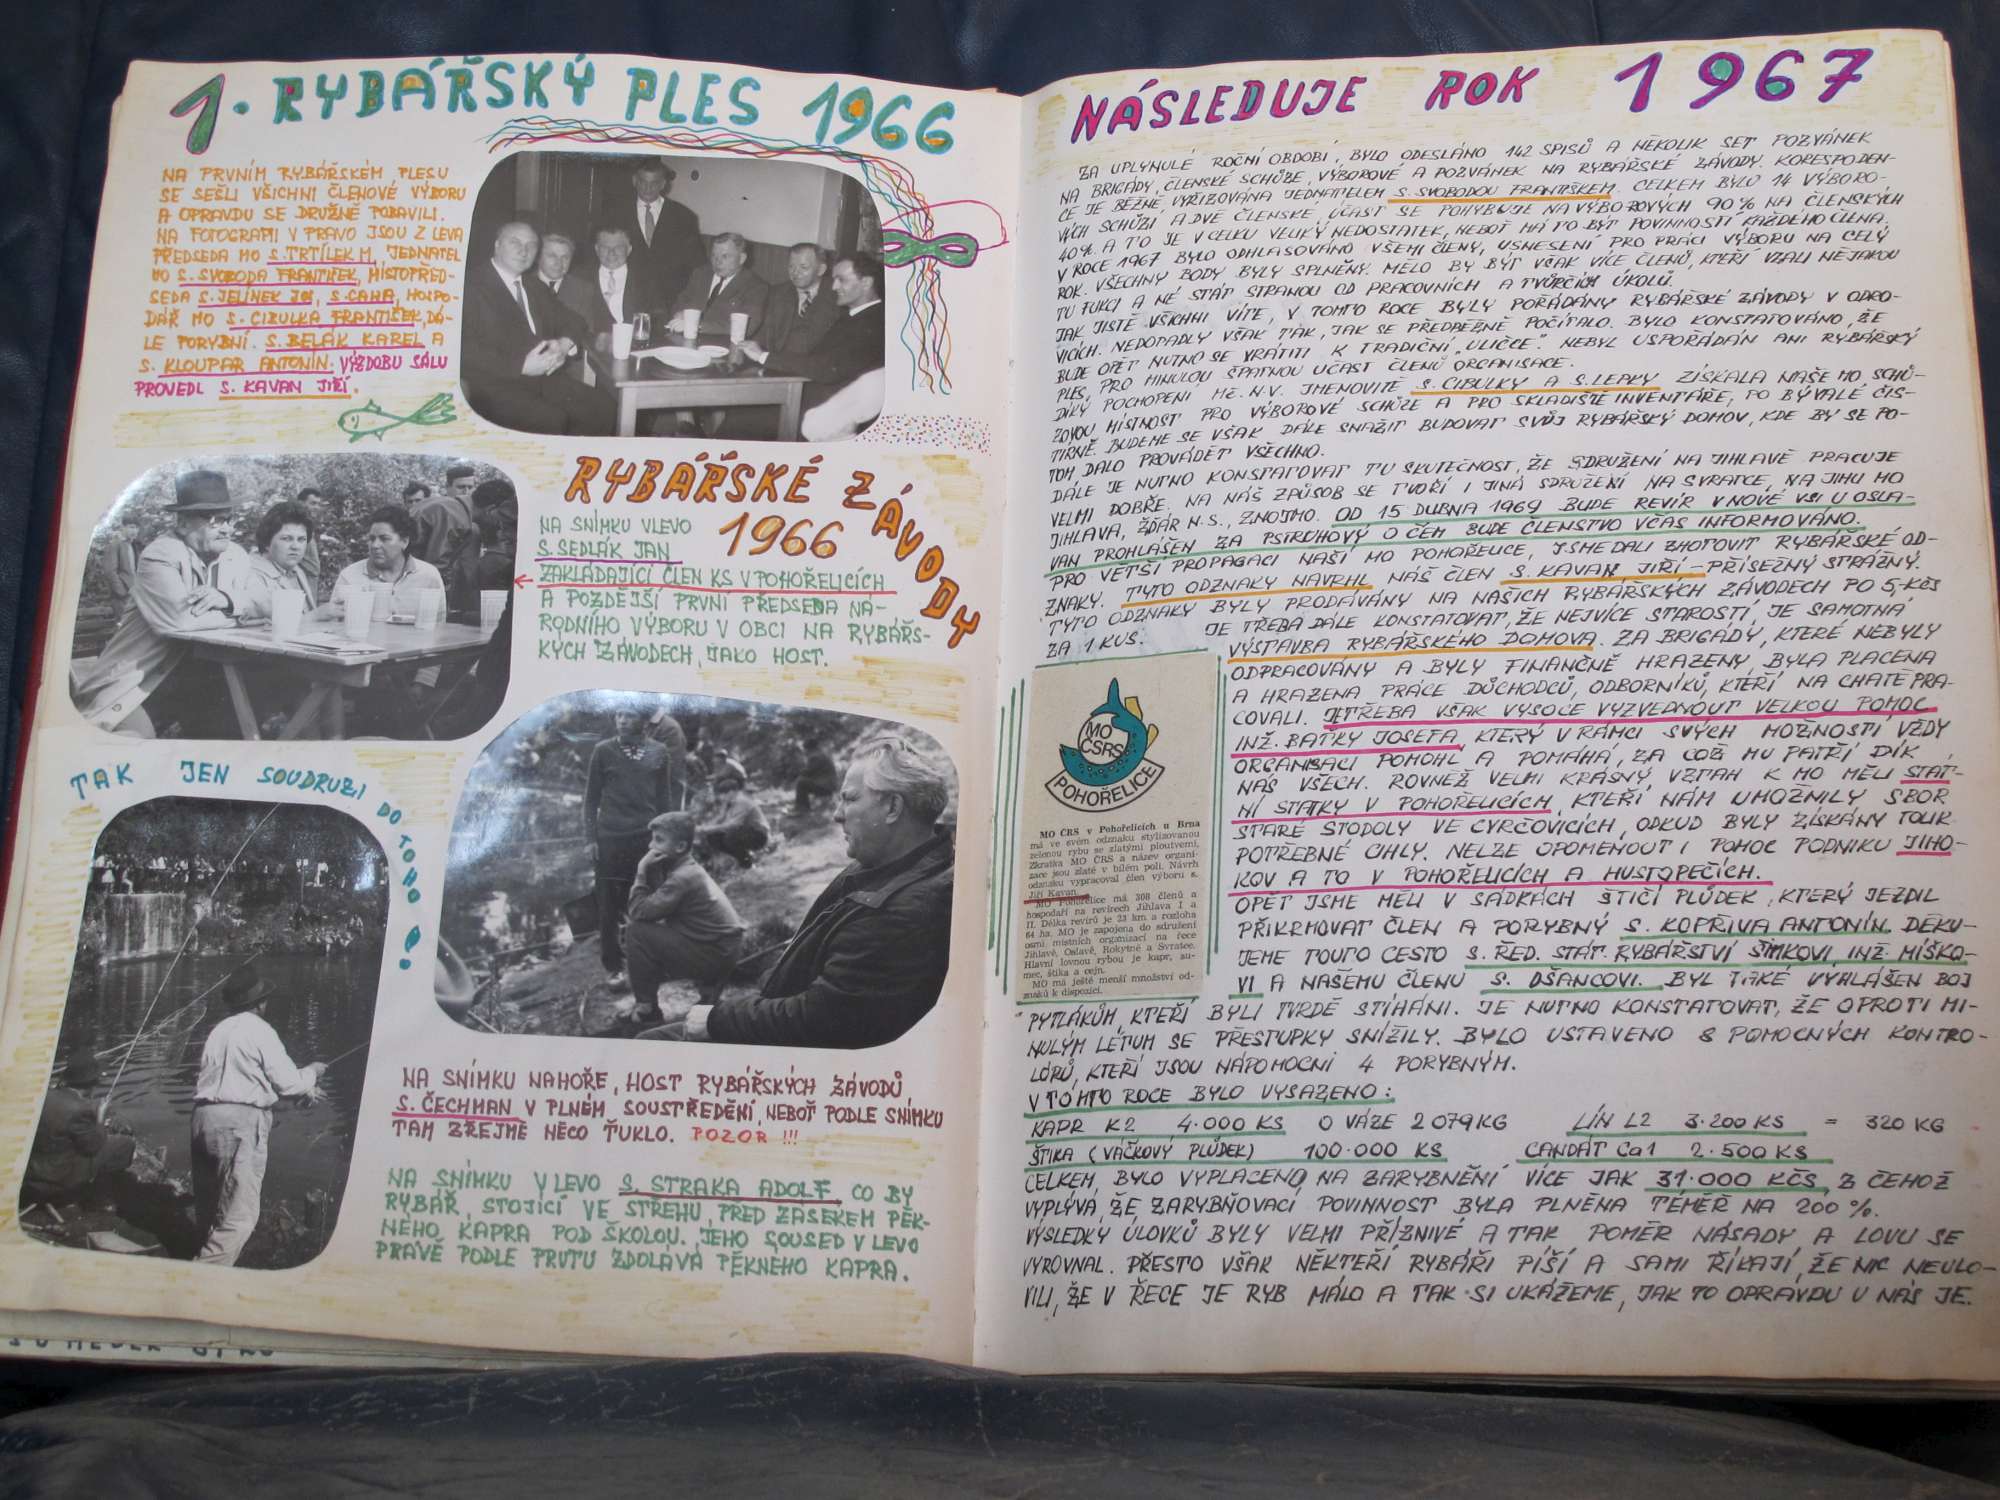 1. RYBÁŘSKÝ PLES 1966
NA PRVNÍM RYBÁŘSKÉM PLESU
SE SEŠLI VŠICHNI ČLENOVÉ VÝBORU
A OPRAVDU SE DRUŽNĚ POBAVILI.
NA FOTOGRAFII V PRAVO JSOU Z LEVA
PŘEDSEDA MO S. TRTÍLEK M, JEDNATEL
MO S. SVOBODA FRANTIŠEK, MÍSTOPŘED-
SEDA S. JELÍNEK JOS, S. CAHA, HOSPO-
DÁŘ MO S. CIBULKA FRANTIŠEK, DÁ-
LE PORYBNÍ. S. BELÁK KAREL A
S. KLOUPAR ANTONÍN. VÝZDOBU SÁLU
PROVEDL S. KAVAN JIŘÍ.
RYBÁŘSKÉ ZÁVODY
1966
NA SNÍMKU VLEVO
S. SEDLÁK JAN
ZAKLÁDAJÍCÍ ČLEN KS V POHOŘELICÍCH
A POZDĚJŠÍ PRVNÍ PŘEDSEDA NÁ-
RODNÍHO VÝBORU V OBCI NA RYBÁŘS-
KÝCH ZÁVODECH, JAKO HOST.
TAK JEN SOUDRUZI DO TOHO
NA SNÍMKU NAHOŘE, HOST RYBÁŘSKÝCH ZÁVODŮ
S. ČECHMAN V PLNÉM SOUSTŘEDĚNÍ, NEBOŤ PODLE SNÍMKU
TAM ZŘEJMĚ NĚCO ŤUKLO. POZOR !!!
NA SNÍMKU VLEVO S. STRAKA ADOLF. CO BY
RYBÁŘ, STOJÍCÍ VE STŘEHU, PŘED ZÁSEKEM PĚK-
NÉHO KAPRA POD ŠKOLOU. JEHO SOUSED V LEVO
PRÁVĚ PODLE PRUTU ZDOLÁVÁ PĚKNÉHO KAPRA.
NÁSLEDUJE ROK 1967
ZA UPLYNULÉ ROČNÍ OBDOBÍ, BYLO ODESLÁNO 142 SPISŮ A NĚKOLIK SET POZVÁNEK
NA BRIGÁDY, ČLENSKÉ SCHŮZE, VÝBOROVÉ A POZVÁNEK NA RYBÁŘSKÉ ZÁVODY. KORESPODEN-
CE JE BĚŽNĚ VYŘIZOVÁNA JEDNATELEM S. SVOBODOU FRANTIŠKEM. CELKEM BYLO 14 VÝBORO-
VÝCH SCHŮZÍ A DVĚ ČLENSKÉ, ÚČAST SE POHYBUJE NA VÝBOROVÝCH 90% NA ČLENSKÝCH
40%. A TO JE V CELKU VELIKÝ NEDOSTATEK, NEBOŤ MÁ TO BÝT POVINNOSTÍ KAŽDÉHO ČLENA.
V ROCE 1967 BYLO ODHLASOVÁNO VŠEMI ČLENY, USNESENÍ PRO PRÁCI VÝBORU NA CELÝ
ROK. VŠECHNY BODY BYLY SPLNĚNY. MĚLO BY BÝT VŠAK VÍCE ČLENŮ, KTEŘÍ VZALI NĚJAKOU
TU FUKCI A NĚ STÁT STRANOU OD PRACOVNÍCH A TVŮRČÍCH ÚKOLŮ.
JAK JISTĚ VŠICHNI VÍTE, V TOMTO ROCE BYLY POŘÁDÁNY RYBÁŘSKÉ ZÁVODY V ODRO-
VICÍCH. NEDOPADLY VŠAK TAK, JAK SE PŘEDBĚŽNĚ POČÍTALO. BYLO KONSTATOVÁNO, ŽE
BUDE OPĚT NUTNO SE VRÁTITI K TRADIČNÍ „ULIČCE". NEBYL USPOŘÁDÁN ANI RYBÁŘSKÝ
PLES, PRO MINULOU ŠPATNOU ÚČAST ČLENŮ ORGANISACE.
DÍKY POCHOPENÍ MĚ. N.V. JMENOVITĚ S. CIBULKY A S. LEPKY ZÍSKALA NAŠE MO SCHŮ-
ZOVOU MÍSTNOST PRO VÝBOROVÉ SCHŮZE A PRO SKLADIŠTĚ INVENTÁŘE, PO BÝVALÉ ČIS-
TÍRNĚ. BUDEME SE VŠAK DÁLE SNAŽIT BUDOVAT SVŮJ RYBÁŘSKÝ DOMOV, KDE BY SE PO-
TOM DALO PROVÁDĚT VŠECHNO.
DÁLE JE NUTNO KONSTATOVAT TU SKUTEČNOST, ŽE SDRUŽENÍ NA JIHLAVĚ PRACUJE
VELMI DOBŘE. NA NÁŠ ZPŮSOB SE TVOŘÍ I JINÁ SDRUŽENÍ NA SVRATCE, NA JIHU MO
JIHLAVA, ŽĎÁR N.S., ZNOJMO. OD 15 DUBNA 1969 BUDE REVÍR V NOVÉ VSI U OSLA-
VAN PROHLÁŠEN ZA PSTRUHOVÝ O ČEM BUDE ČLENSTVO VČAS INFORMOVÁNO.
PRO VĚTŠÍ PROPAGACI NAŠÍ MO POHOŘELICE, JSME DALI ZHOTOVIT RYBÁŘSKÉ OD-
ZNAKY. TYTO ODZNAKY NAVRHL NÁŠ ČLEN S. KAVAN JIŘÍ - PŘÍSEŽNÝ STRÁŽNÝ.
TYTO ODZNAKY BYLY PRODÁVÁNY NA NAŠICH RYBÁŘSKÝCH ZÁVODECH PO 5,- KčS
ZA 1 KUS. JE TŘEBA DÁLE KONSTATOVAT, ŽE NEJVÍCE STAROSTÍ, JE SAMOTNÁ
VÝSTAVBA RYBÁŘSKÉHO DOMOVA. ZA BRIGÁDY, KTERÉ NEBYLY
ODPRACOVÁNY A BYLY FINANČNĚ HRAZENY, BYLA PLACENA
A HRAZENA PRÁCE DŮCHODCŮ, ODBORNÍKŮ, KTEŘÍ NA CHATĚ PRA-
COVALI. JE TŘEBA VŠAK VYSOCE VYZVEDNOUT VELKOU POMOC
INŽ. BAŤKY JOSEFA, KTERÝ V RÁMCI SVÝCH MOŽNOSTÍ VŽDY
ORGANISACI POMOHL A POMÁHÁ, ZA COŽ MU PATŘÍ DÍK
NÁS VŠECH. ROVNĚŽ VELMI KRÁSNÝ VZTAH K MO MĚLI STÁT-
NÍ STATKY V POHOŘELICÍCH, KTEŘÍ NÁM UMOŽNILY SBOR
STARÉ STODOLY VE CVRČOVICÍCH, ODKUD BYLY ZÍSKÁNY TOLIK
POTŘEBNÉ CIHLY. NELZE OPOMENOUT I POMOC PODNIKU JIHO-
KOV A TO V POHOŘELICÍCH A HUSTOPEČÍCH.
OPĚT JSME MĚLI V SÁDKÁCH ŠTIČÍ PLŮDEK, KTERÝ JEZDIL
PŘIKRMOVAT ČLEN A PORYBNÝ S. KOPŘIVA ANTONÍN. DĚKU-
JEME TOUTO CESTO S. ŘED. STÁT. RYBÁŘSTVÍ ŠIMKOVI, INŽ. MIŠKO-
VI A NAŠEMU ČLENU S. DŠANCOVI. BYL TAKÉ VYHLÁŠEN BOJ
PYTLÁKŮM, KTEŘÍ BYLI TVRDĚ STÍHÁNI. JE NUTNO KONSTATOVAT, ŽE OPROTI MI-
NULÝM LÉTŮM SE PŘESTUPKY SNÍŽILY. BYLO USTAVENO 8 POMOCNÝCH KONTRO-
LÓRŮ, KTEŘÍ JSOU NÁPOMOCNI 4 PORYBNÝM.
V TOMTO ROCE BYLO VYSAZENO:
KAPR K2 4.000 KS O VÁZE 2 079 KG LÍN L2 3.200 KS = 320 KG
ŠTIKA (VÁČKOVÝ PLŮDEK) 100.000 KS CANDÁT Ca1 2.500 KS
CELKEM BYLO VYPLACENO NA ZARYBNĚNÍ VÍCE JAK 31.000 KČS, Z ČEHOŽ
VYPLÝVÁ, ŽE ZARYBŇOVACÍ POVINNOST BYLA PLNĚNA TÉMĚŘ NA 200%.
VÝSLEDKY ÚLOVKŮ BYLY VELMI PŘÍZNIVÉ A TAK POMĚR NÁSADY A LOVU SE
VYROVNAL. PŘESTO VŠAK NĚKTEŘÍ RYBÁŘI PÍŠÍ A SAMI ŘÍKAJÍ, ŽE NIC NEULO-
VILI, ŽE V ŘECE JE RYB MÁLO A TAK SI UKÁŽEME, JAK TO OPRAVDU U NÁS JE.
MO
ČSRS
POHOŘELICE
MO ČRS v Pohořelicích u Brna
má ve svém odznaku stylizovanou
zelenou rybu se zlatými ploutvemi.
Zkratka MO ČRS a název organi-
zace jsou zlaté v bílém poli. Návrh
odznaku vypracoval člen výboru s.
Jiří Kavan.
MO Pohořelice má 308 členů a
hospodaří na revírech Jihlava I a
II. Délka revírů je 23 km a rozloha
64 ha. MO je zapojena do sdružení
osmi místních organizací na řece
Jihlavě, Oslavě, Rokytné a Svratce.
Hlavní lovnou rybou je kapr, su-
mec, štika a cejn.
MO má ještě menší množství od-
znaků k dispozici.